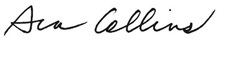 Ava Collins